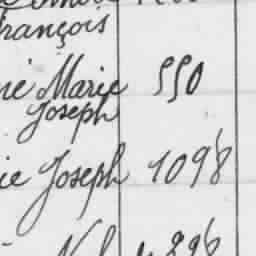 François
né Marie 550
Joseph
ie Joseph 1098
896